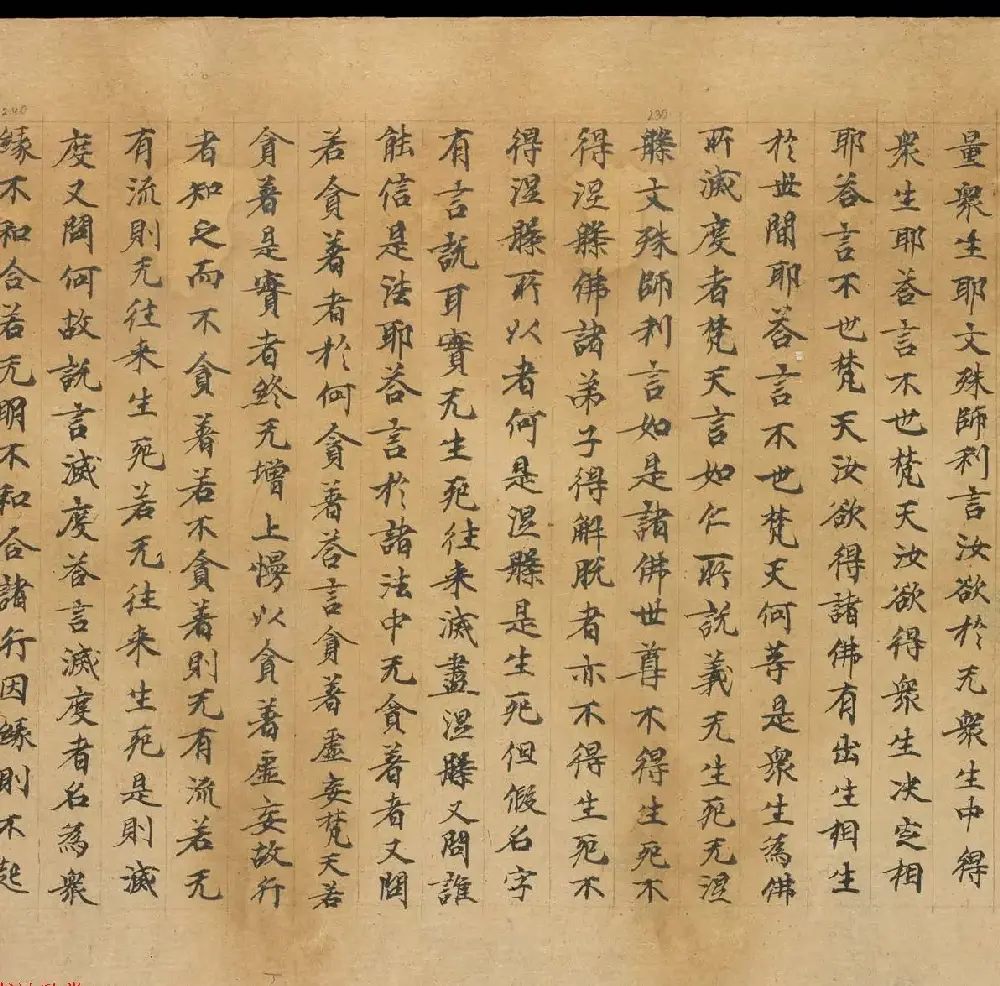 230
240
量衆生耶文殊師利言汝欲於无衆生中得
衆生耶荅言不也梵天汝欲得衆生决定相
耶荅言不也梵天汝欲得諸佛有出生相生
於世間耶荅言不也梵天何等是衆生為佛
所滅度者梵天言如仁所說義无生死无涅
槃文殊師利言如是諸佛世尊不得生死不
得涅槃佛諸弟子得解脫者亦不得生死不
得涅槃所以者何是涅槃是生死但假名字
有言說耳實无生死往来滅盡涅槃又問誰
能信是法耶荅言於諸法中无貪著者又問
若貪著者於何貪著荅言貪著虛妄梵天若
貪著是實者終无增上慢以貪著虛妄故行
者知之而不貪著若不貪著則无有流若无
有流則无往来生死若无往来生死是則滅
度又問何故說言滅度荅言滅度者名為衆
緣不和合若无明不和合諸行因緣則不起